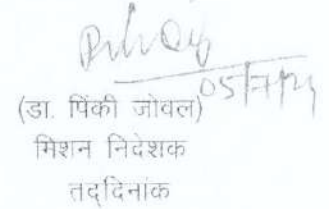 05/7/24
(डा. पिंकी जोवल)
मिशन निदेशक
तद्दिनांक